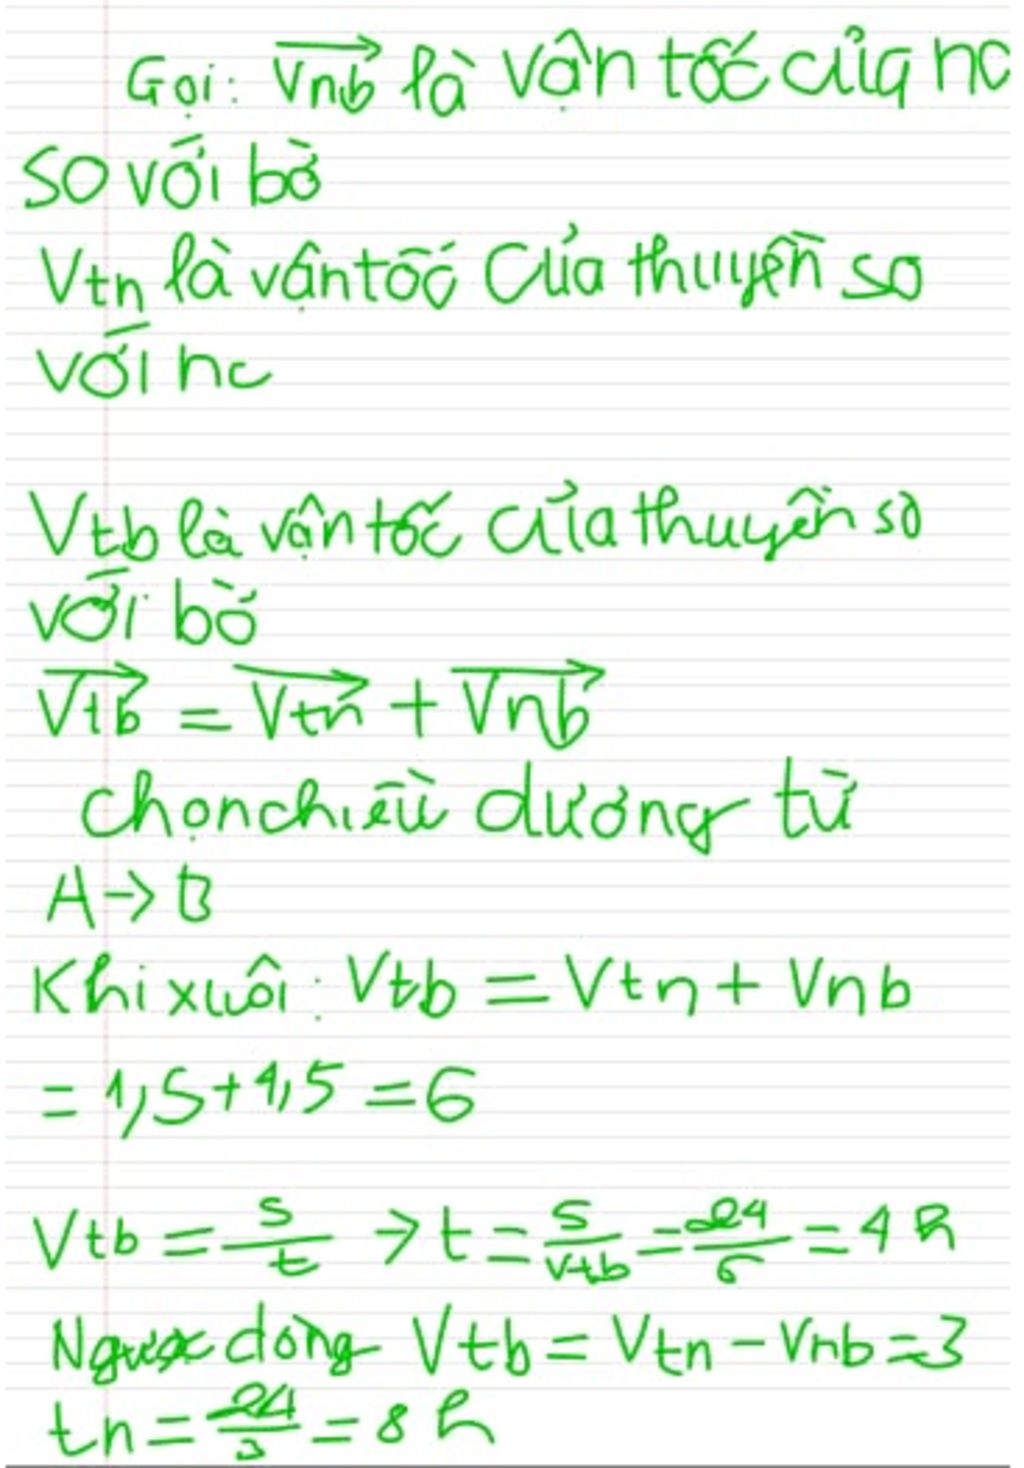 Gọi: Vnb là vận tốc của nc
so với bờ
Vtn là vận tốc của thuyền so
với nc
Vtb là vận tốc của thuyền so
với bờ
Vtb = Vtn + Vnb
chọn chiều dương từ
A → B
Khi xuôi: Vtb = Vtn + Vnb
= 1,5 + 4,5 = 6
Vtb = s/t → t = s/vtb = 24/6 = 4 h
Ngược dòng Vtb = Vtn - Vnb = 3
tn = 24/3 = 8 h